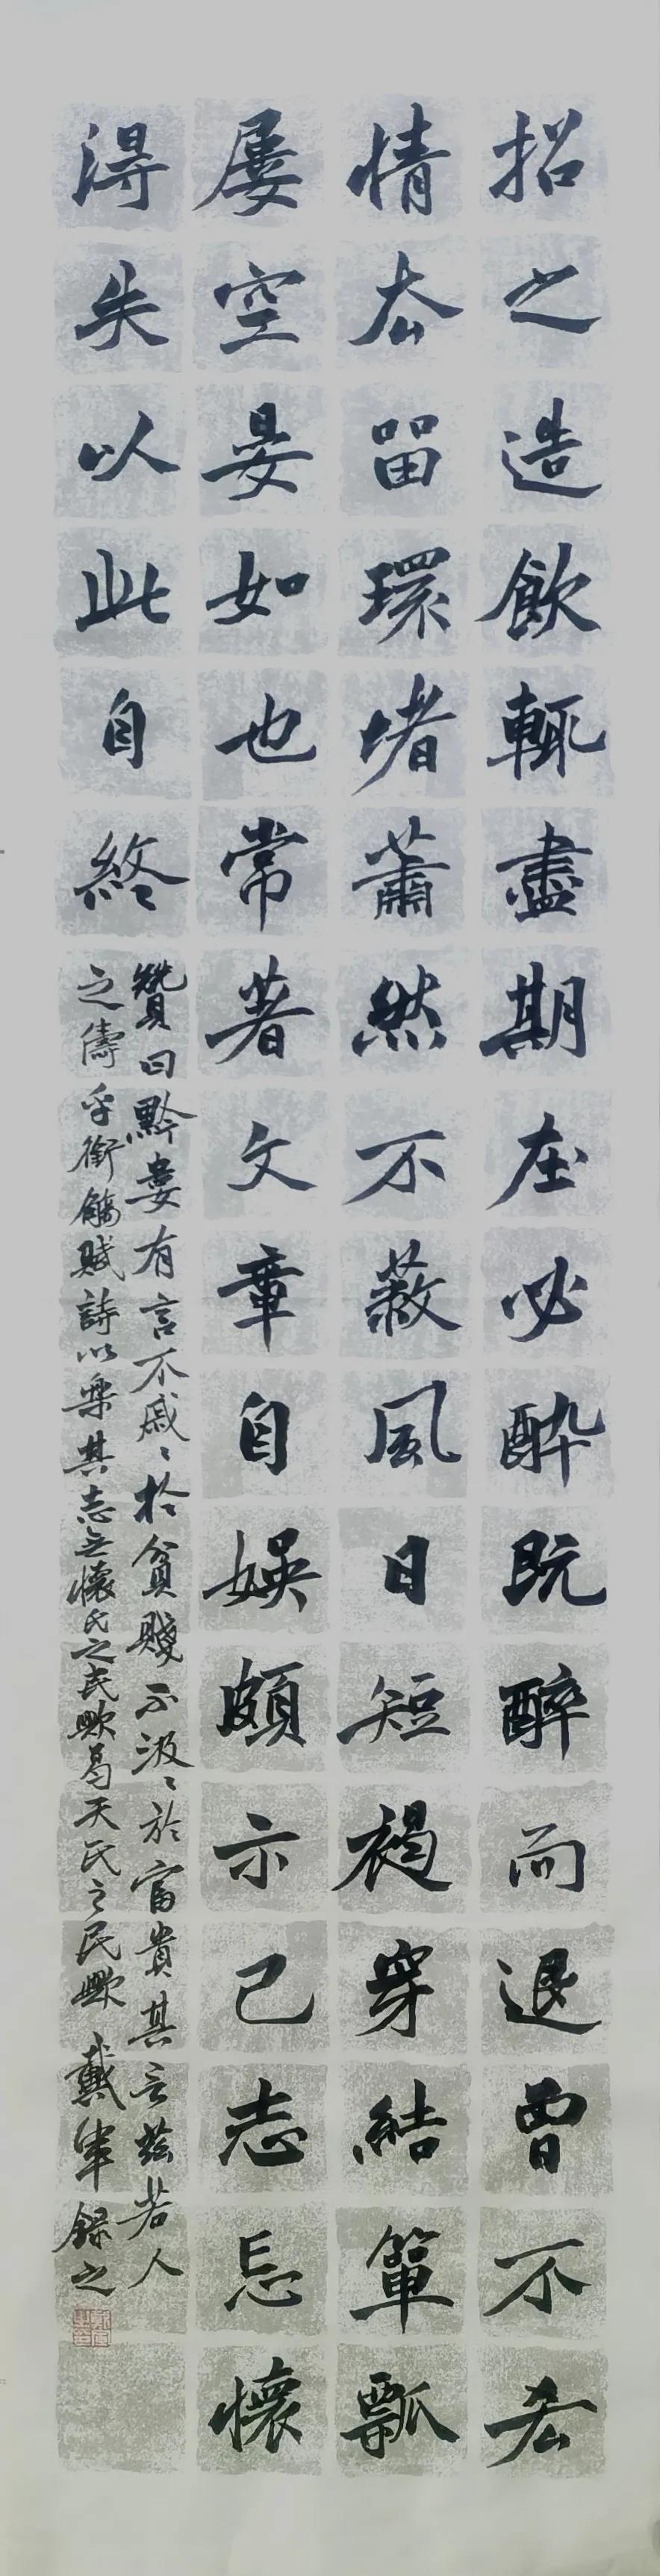 招之造飲輒盡期在必酔既醉而退曾不吝
情去留環堵蕭然不蔽風日短褐穿結簞瓢
屢空晏如也常著文章自娛頗示己志忘懷
得失以此自終
贊曰黔婁有言不戚〻於貧賤不汲〻於富貴其言茲若人
之儔乎銜觴賦詩以樂其志無懷氏之民歟葛天氏之民歟 戴軍錄之